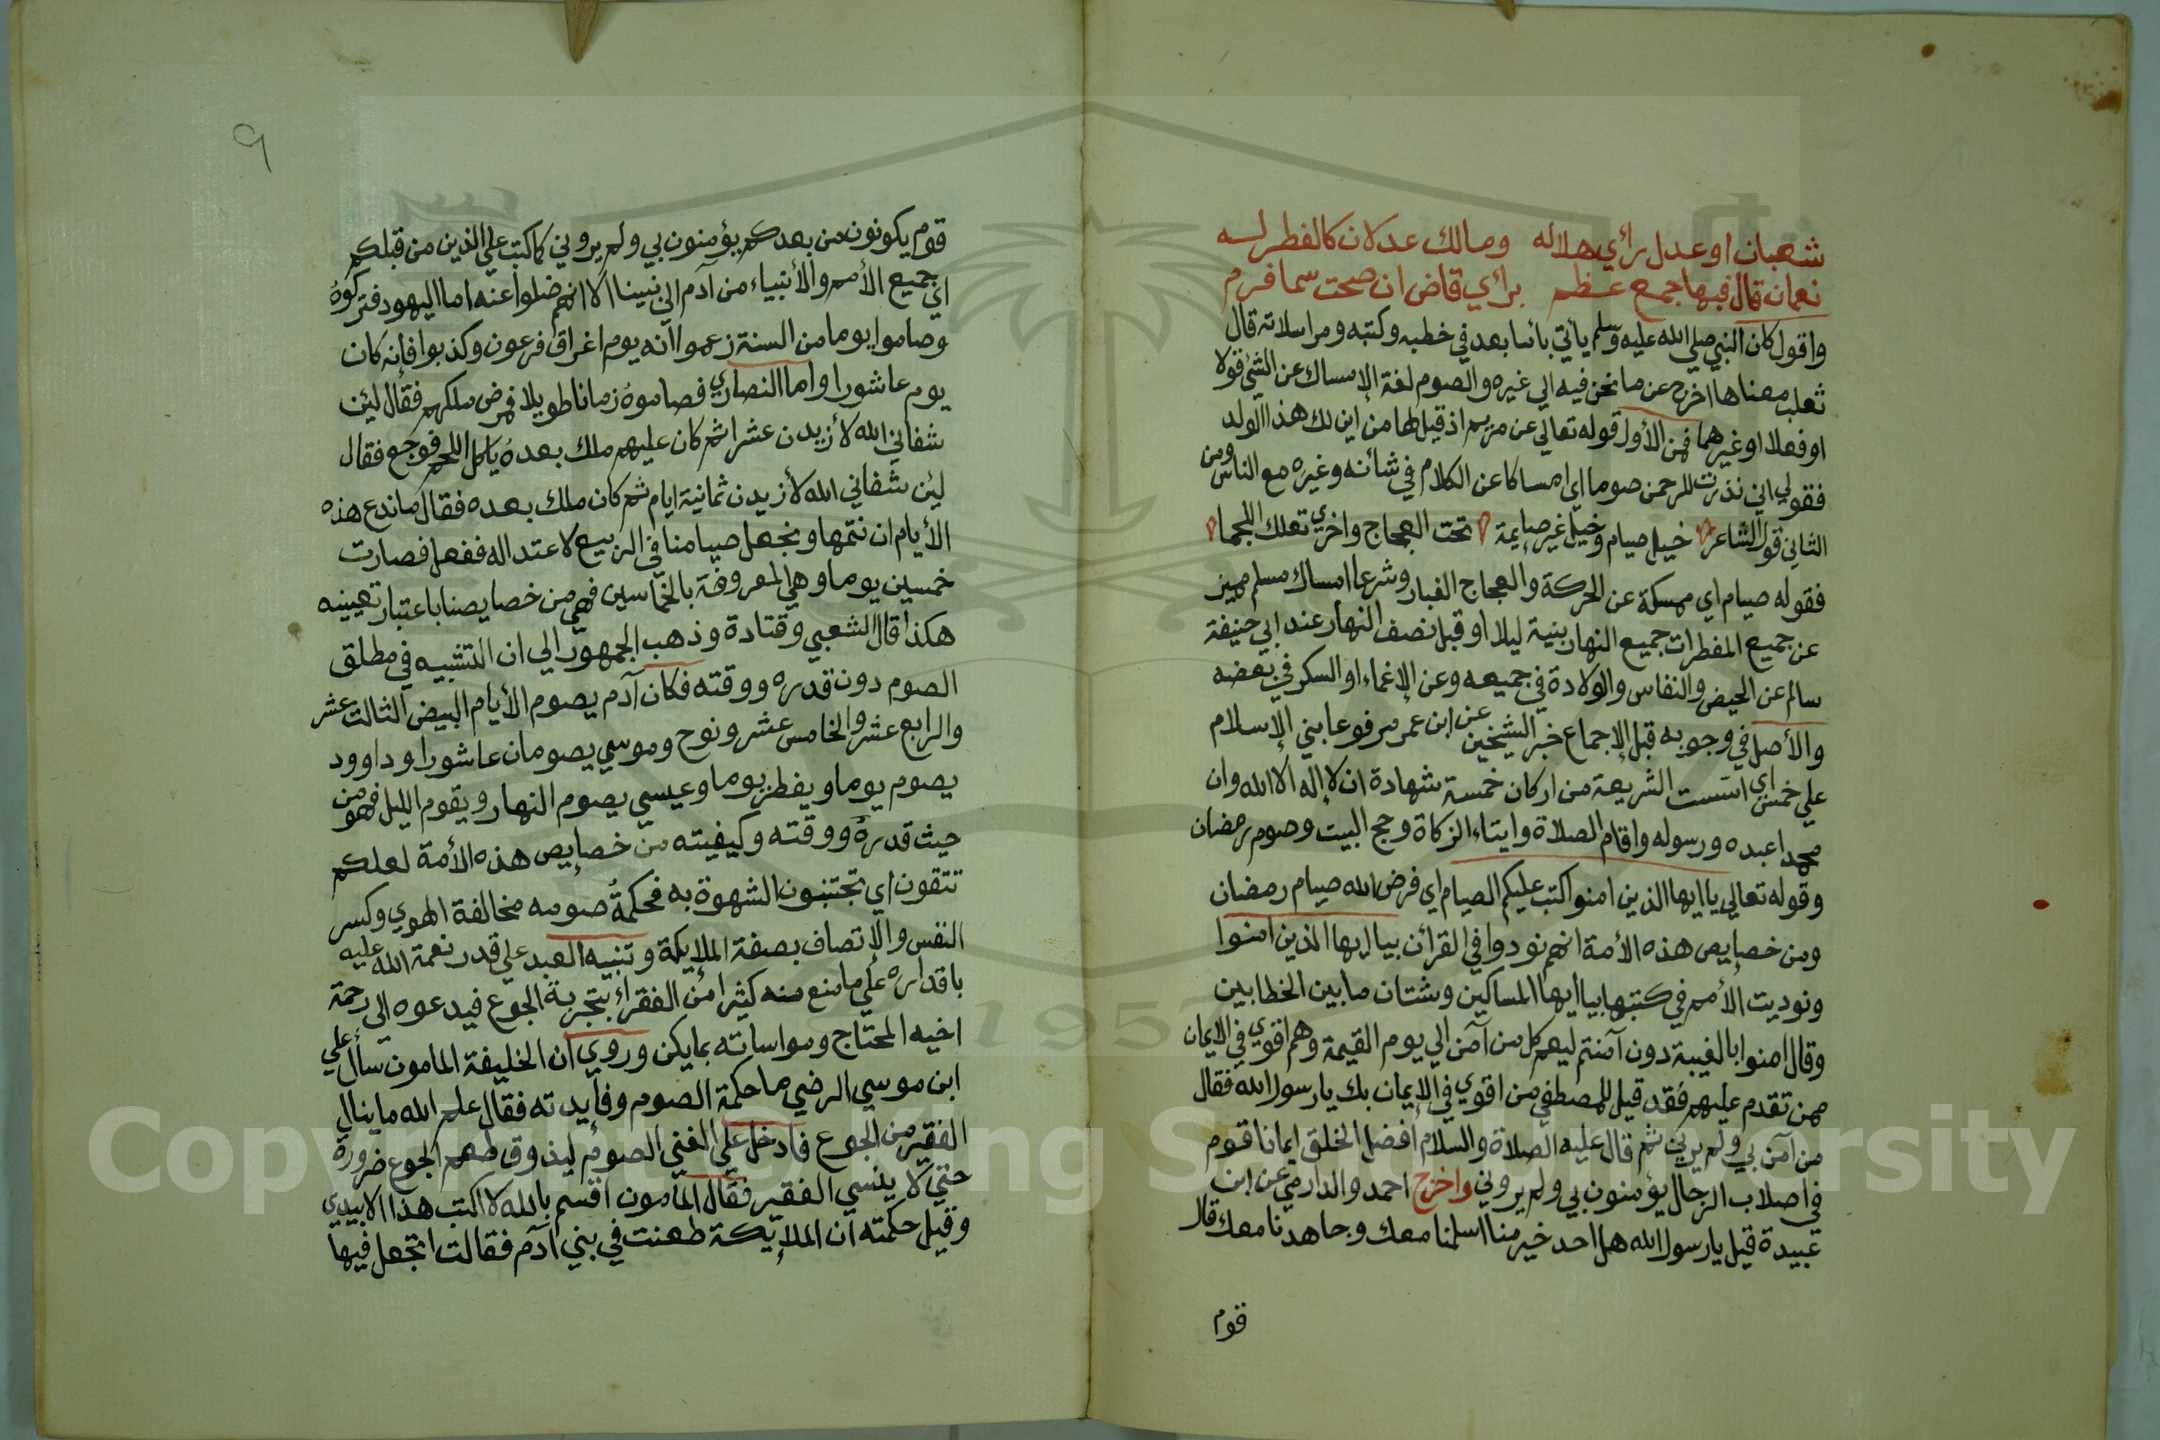 شعبان او عدل رأي هلاله ومالك عدلان كالفطر له
نعمان قال فيها جمع عظم برأي قاض ان صحت سما فرم
واقول كان النبي صلي الله عليه وسلم يأتي بأما بعد في خطبه وكتبه ومراسلاته قال
ثعلب معناها اخرج عن ما نحن فيه الي غيره والصوم لغة الإمساك عن الشئ قولا
او فعلا او غيرهما فمن الأول قوله تعالي عن مريم اذ قيل لها من اين لك هذا الولد
فقولي اني نذرت للرحمن صوما اي امساكا عن الكلام في شأنه وغيره مع الناس ومن
الثاني قول الشاعر خيل صيام وخيل غير صايمة تحت العجاج واخري تعلك اللجما
فقوله صيام اي ممسكة عن الحركة والعجاج الغبار وشرعا امساك مسلم مميز
عن جميع المفطرات جميع النهار بنية ليلا او قبل نصف النهار عند ابي حنيفة
سالم عن الحيض والنفاس والولادة في جميعه وعن الإغماء او السكر في بعضه
والأصل في وجوبه قبل الإجماع خبر الشيخين عن ابن عمر مرفوعا بني الإسلام
علي خمس اي اسست الشريعة من اركان خمسة شهادة ان لا إله الا الله وان
محمدا عبده ورسوله واقام الصلاة وايتاء الزكاة وحج البيت وصوم رمضان
وقوله تعالي يا ايها الذين امنوا كتب عليكم الصيام اي فرض الله صيام رمضان
ومن خصايص هذه الأمة انهم نودوا في القرآن بيا ايها الذين امنوا
ونوديت الأمم في كتبها بيا ايها المساكين وشتان ما بين الخطابين
وقال امنوا بالغيبة دون آمنتم ليعم كل من آمن الي يوم القيمة وهم اقوي في الايمان
ممن تقدم عليهم فقد قيل للمصطفي من اقوي في الإيمان بك يا رسول الله فقال
من آمن بي ولم يرني ثم قال عليه الصلاة والسلام افضل الخلق ايمانا قوم
في اصلاب الرجال يؤمنون بي ولم يروني واخرج احمد والدارمي عن ابن
عبيدة قيل يا رسول الله هل احد خير منا اسلمنا معك وجاهدنا معك قال
قوم
٩
قوم يكونون من بعدكم يؤمنون بي ولم يروني كما كتب علي الذين من قبلكم
اي جميع الأمم والأنبياء من آدم الي نبينا الا انهم ضلوا عنه اما اليهود فتركوه
وصاموا يوما من السنة زعموا انه يوم اغراق فرعون وكذبوا فإنه كان
يوم عاشورا واما النصاري فصاموه زمانا طويلا فمرض ملكهم فقال لئن
شفاني الله لأزيدن عشرا ثم كان عليهم ملك بعده يأكل اللحم فوجع فقال
لئن شفاني الله لأزيدن ثمانية ايام ثم كان ملك بعده فقال ما ندع هذه
الأيام ان نتمها ونجعل صيامنا في الربيع لاعتداله ففعل فصارت
خمسين يوما وهي المعروفة بالخماسين فهي من خصايصنا باعتبار تعيينه
هكذا قال الشعبي وقتادة وذهب الجمهور الي ان التشبيه في مطلق
الصوم دون قدره ووقته فكان آدم يصوم الأيام البيض الثالث عشر
والرابع عشر والخامس عشر ونوح وموسي يصومان عاشورا وداوود
يصوم يوما ويفطر يوما وعيسي يصوم النهار ويقوم الليل فهو من
حيث قدره ووقته وكيفيته من خصايص هذه الأمة لعلكم
تتقون اي تجتنبون الشهوة به فحكمة صومه مخالفة الهوي وكسر
النفس والإتصاف بصفة الملايكة وتنبيه العبد علي قدر نعمة الله عليه
باقداره علي ما منع منه كثيرا من الفقراء بتجربة الجوع فيدعوه الي رحمة
اخيه المحتاج ومواساته بما يكن وروي ان الخليفة المامون سأل علي
ابن موسي الرضي ما حكمة الصوم وفايدته فقال علم الله ما ينال
الفقير من الجوع فادخل علي الغني الصوم ليذوق طعم الجوع ضرورة
حتي لا ينسي الفقير فقال المأمون اقسم بالله لا اكتب هذا الا بيدي
وقيل حكمته ان الملايكة طعنت في بني آدم فقالت اتجعل فيها
Copyright © King Saud University
1957